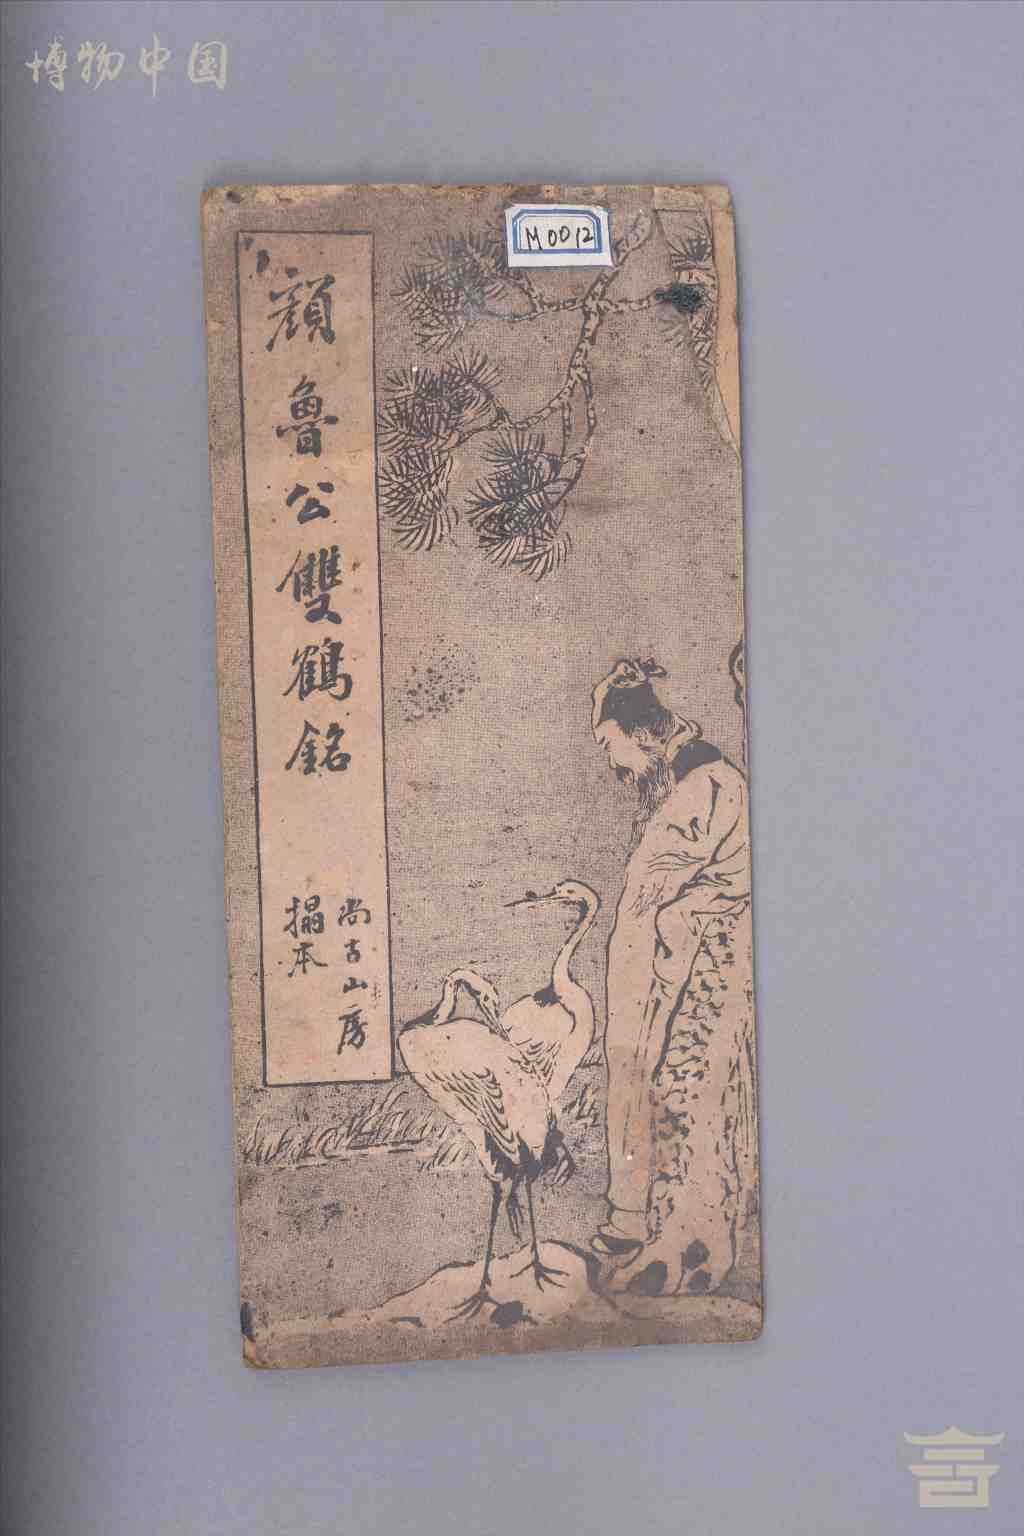 博物中国
M0012
顏魯公雙鶴銘
尚古山房
搨本